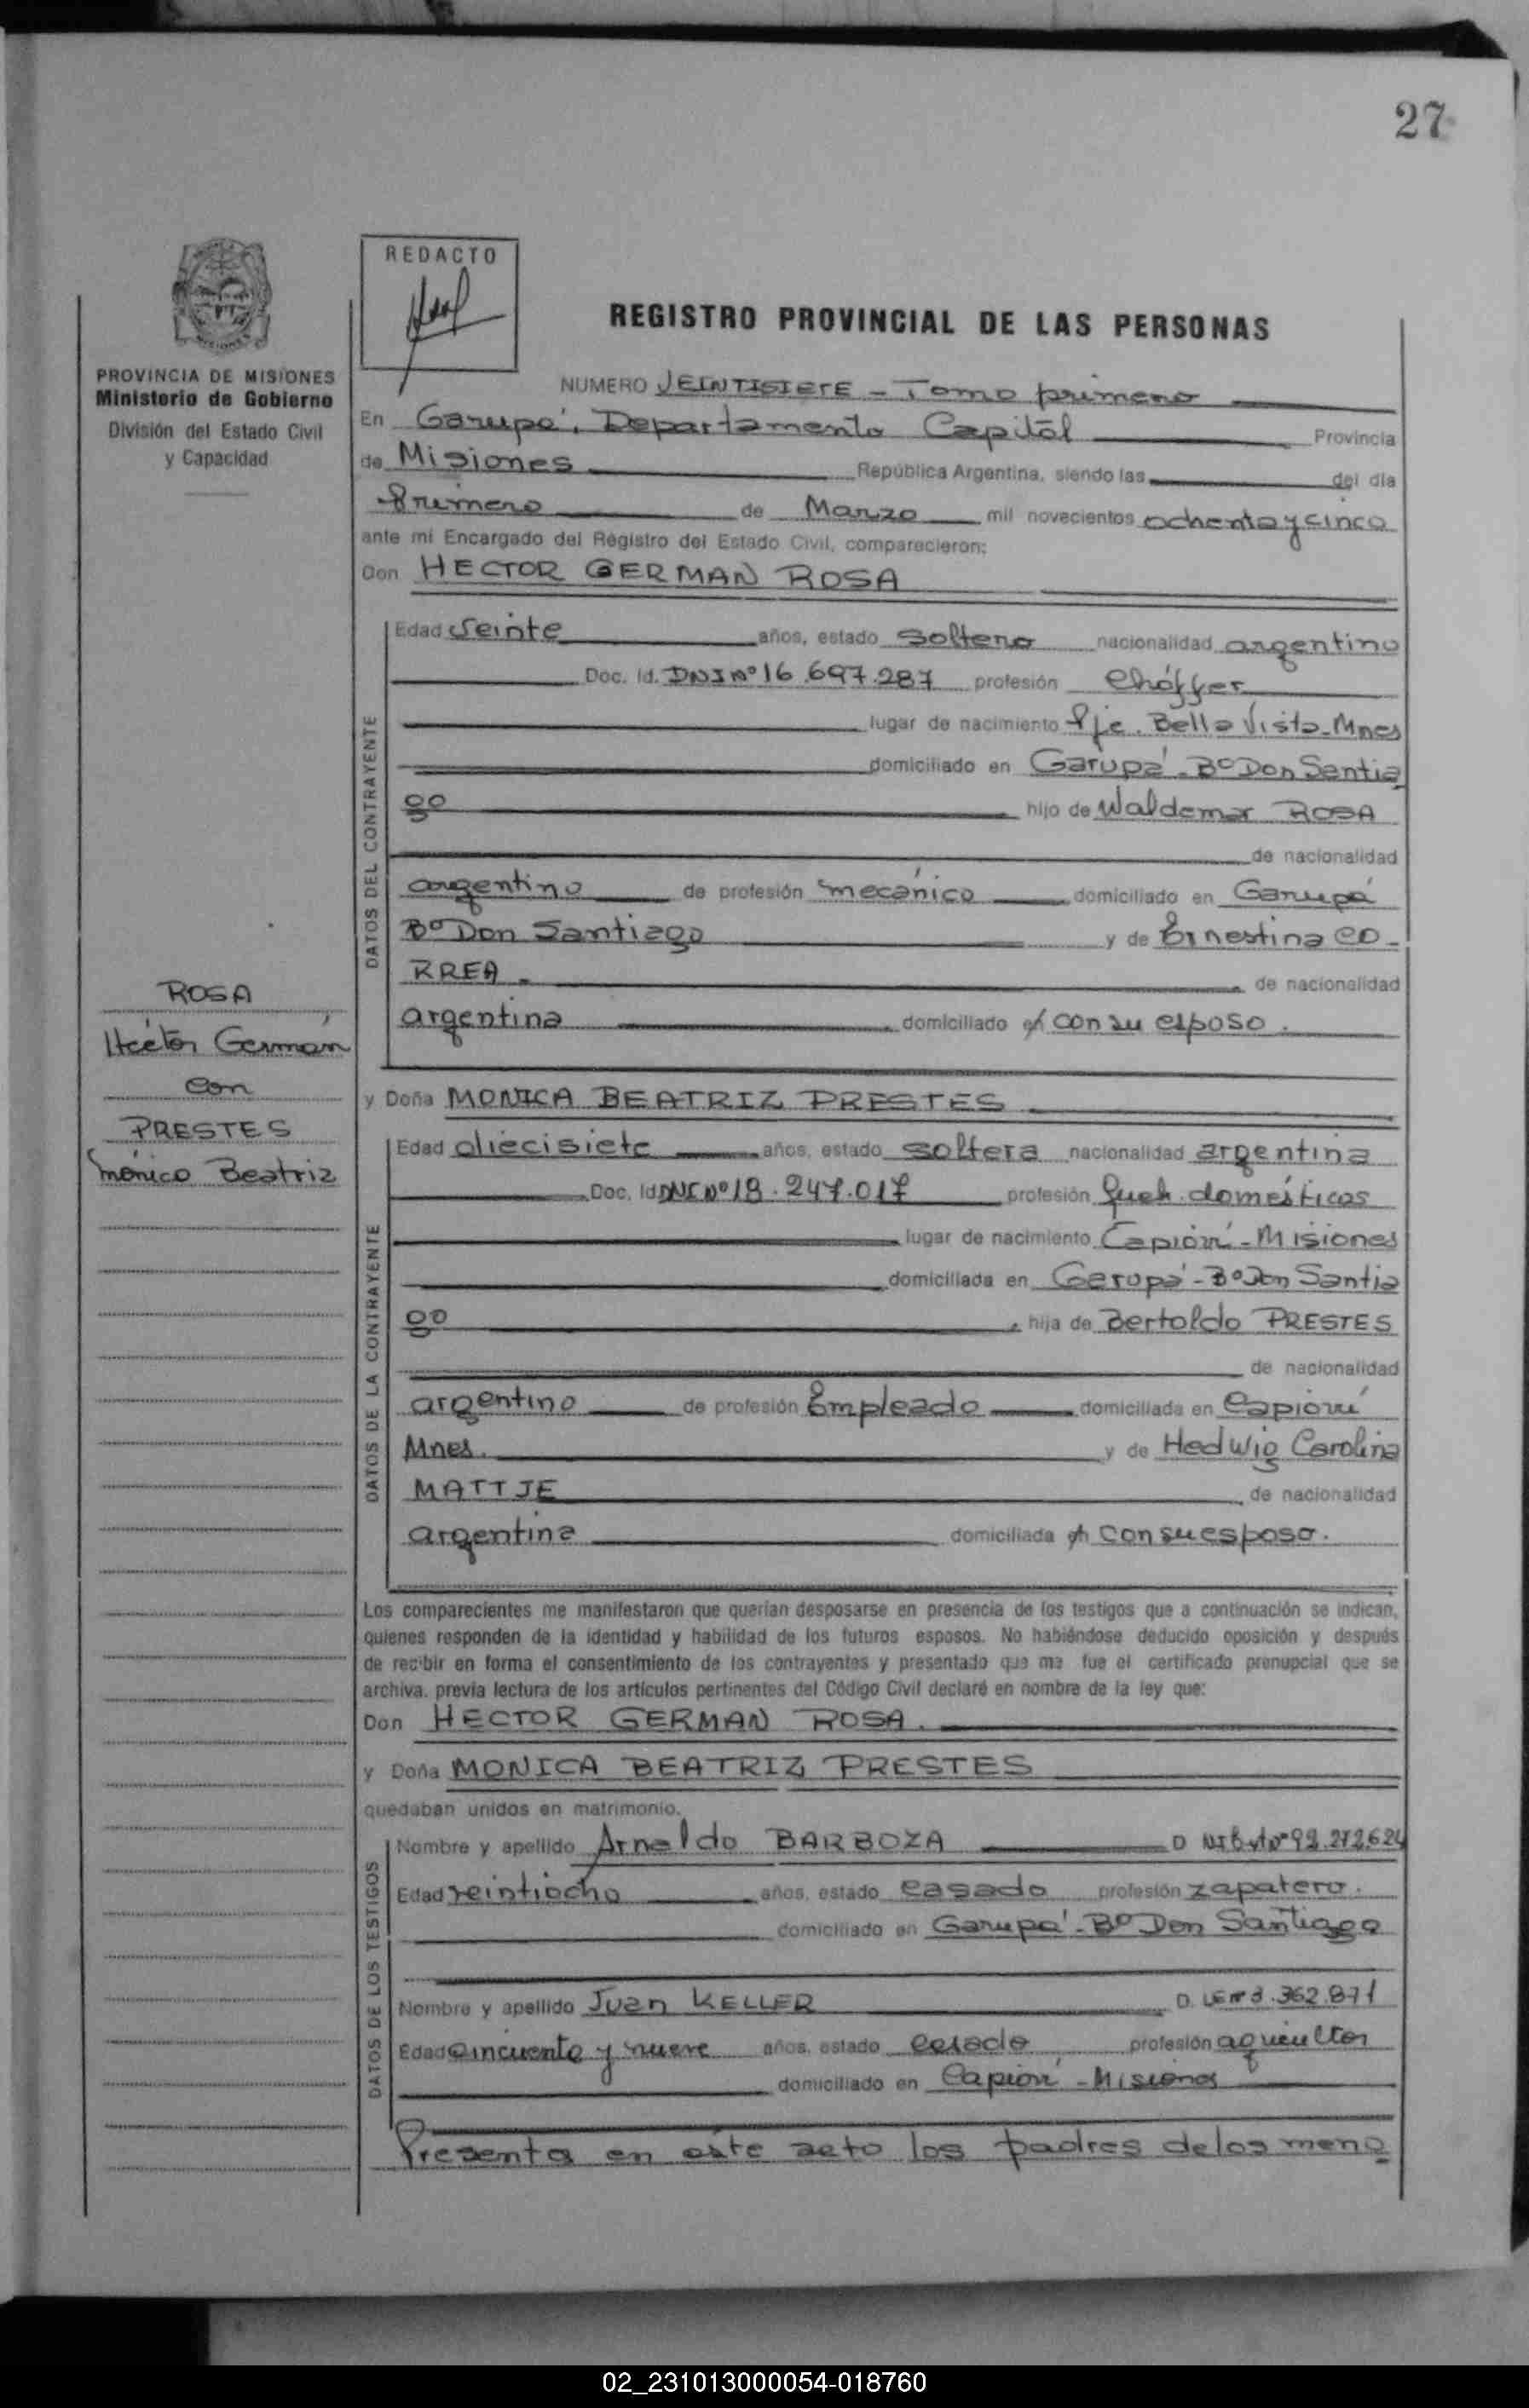 27
REDACTO
REGISTRO PROVINCIAL DE LAS PERSONAS
PROVINCIA DE MISIONES
Ministerio de Gobierno
División del Estado Civil
y Capacidad
NUMERO VEINTISIETE - Tomo primero
En Garupá, Departamento Capital Provincia
de Misiones República Argentina, siendo las del día
Primero de Marzo mil novecientos ochenta y cinco
ante mí Encargado del Registro del Estado Civil, comparecieron:
Don HECTOR GERMAN ROSA
DATOS DEL CONTRAYENTE
Edad veinte años, estado soltero nacionalidad argentino
Doc. Id. DNI Nº 16.697.287 profesión chóffer
lugar de nacimiento Pje. Bella Vista-Mnes
domiciliado en Garupá-Bº Don Santia
go hijo de Waldemar ROSA
de nacionalidad
argentino de profesión mecánico domiciliado en Garupá
Bº Don Santiago y de Ernestina CO-
RREA de nacionalidad
argentina domiciliado con su esposo.
ROSA
Héctor Germán
con
PRESTES
Mónica Beatriz
y Doña MONICA BEATRIZ PRESTES
DATOS DE LA CONTRAYENTE
Edad diecisiete años, estado soltera nacionalidad argentina
Doc. Id Nº 18.247.017 profesión domésticos
lugar de nacimiento Capioví-Misiones
domiciliada en Garupá-Bº Don Santia
go hija de Bertoldo PRESTES
de nacionalidad
argentino de profesión Empleado domiciliada en Capioví
Mnes. y de Hedwig Carolina
MATTJE de nacionalidad
argentina domiciliada con su esposo.
Los comparecientes me manifestaron que querían desposarse en presencia de los testigos que a continuación se indican,
quienes responden de la identidad y habilidad de los futuros esposos. No habiéndose deducido oposición y después
de recibir en forma el consentimiento de los contrayentes y presentado que me fue el certificado prenupcial que se
archiva, previa lectura de los artículos pertinentes del Código Civil declaré en nombre de la ley que:
Don HECTOR GERMAN ROSA.
y Doña MONICA BEATRIZ PRESTES
quedaban unidos en matrimonio.
DATOS DE LOS TESTIGOS
Nombre y apellido Arnaldo BARBOZA D
Edad veintiocho años, estado casado profesión zapatero.
domiciliado en Garupá-Bº Don Santiago
Nombre y apellido Juan KELLER D. LE Nº 3.362.871
Edad cincuenta y nueve años, estado casado profesión agricultor
domiciliado en Capioví-Misiones
Presenta en este acto los padres de los meno
02_231013000054-018760